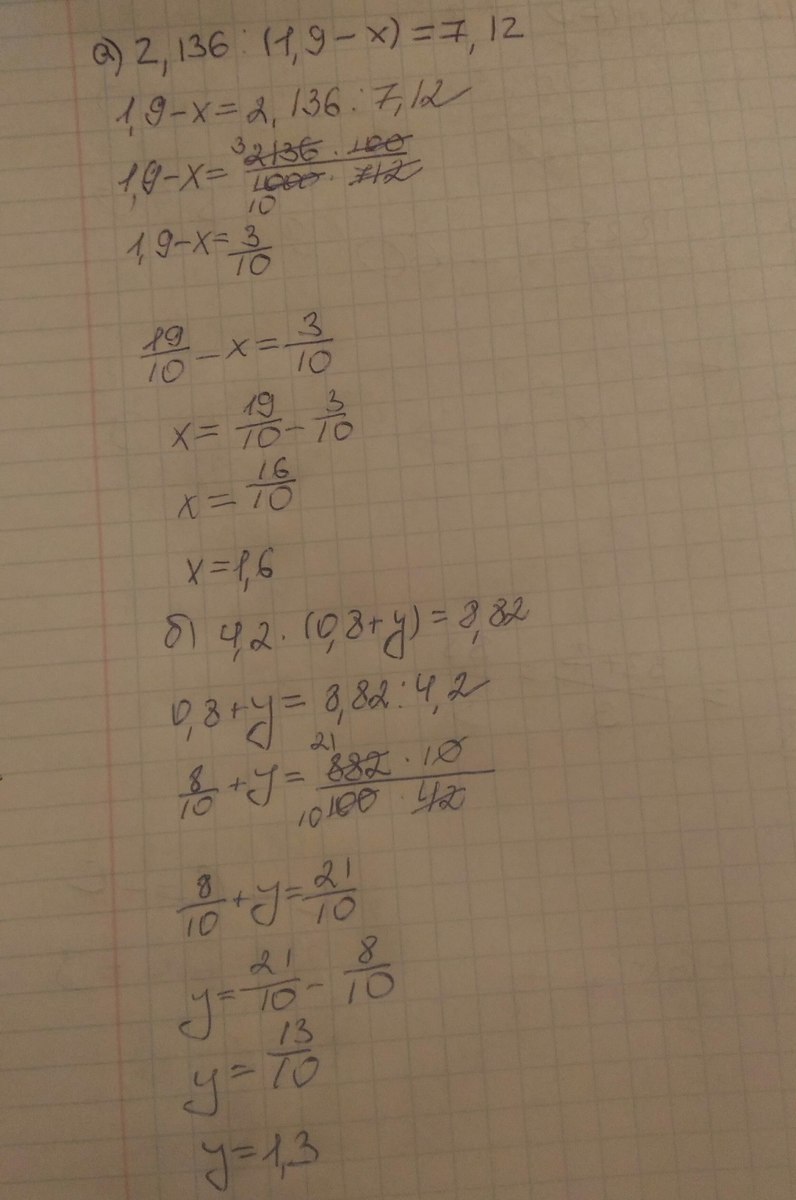 а) 2,136 : (1,9 - x) = 7,12
1,9 - x = 2,136 : 7,12
1,9 - x = 3 2136 · 100 / 1000 · 712 10
1,9 - x = 3/10
19/10 - x = 3/10
x = 19/10 - 3/10
x = 16/10
x = 1,6
б) 4,2 · (0,8 + y) = 8,82
0,8 + y = 8,82 : 4,2
8/10 + y = 21 882 · 10 / 10 100 · 42
8/10 + y = 21/10
y = 21/10 - 8/10
y = 13/10
y = 1,3